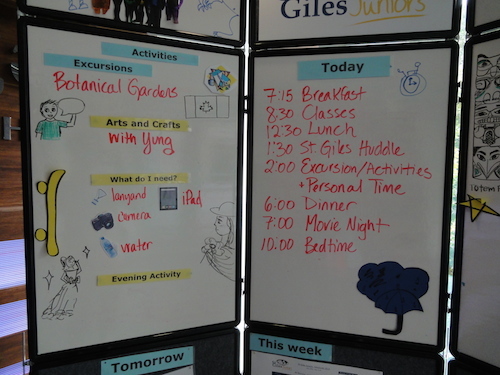 Giles Juniors
Activities
Excursions
Botanical Gardens
Arts and Crafts
With Yung
What do I need?
lanyard
iPad
camera
water
Evening Activity
Today
7:15 Breakfast
8:30 Classes
12:30 Lunch
1:30 St Giles Huddle
2:00 Excursion/Activities
+ Personal Time
6:00 Dinner
7:00 Movie Night
10:00 Bedtime
Totem
Tomorrow
This week